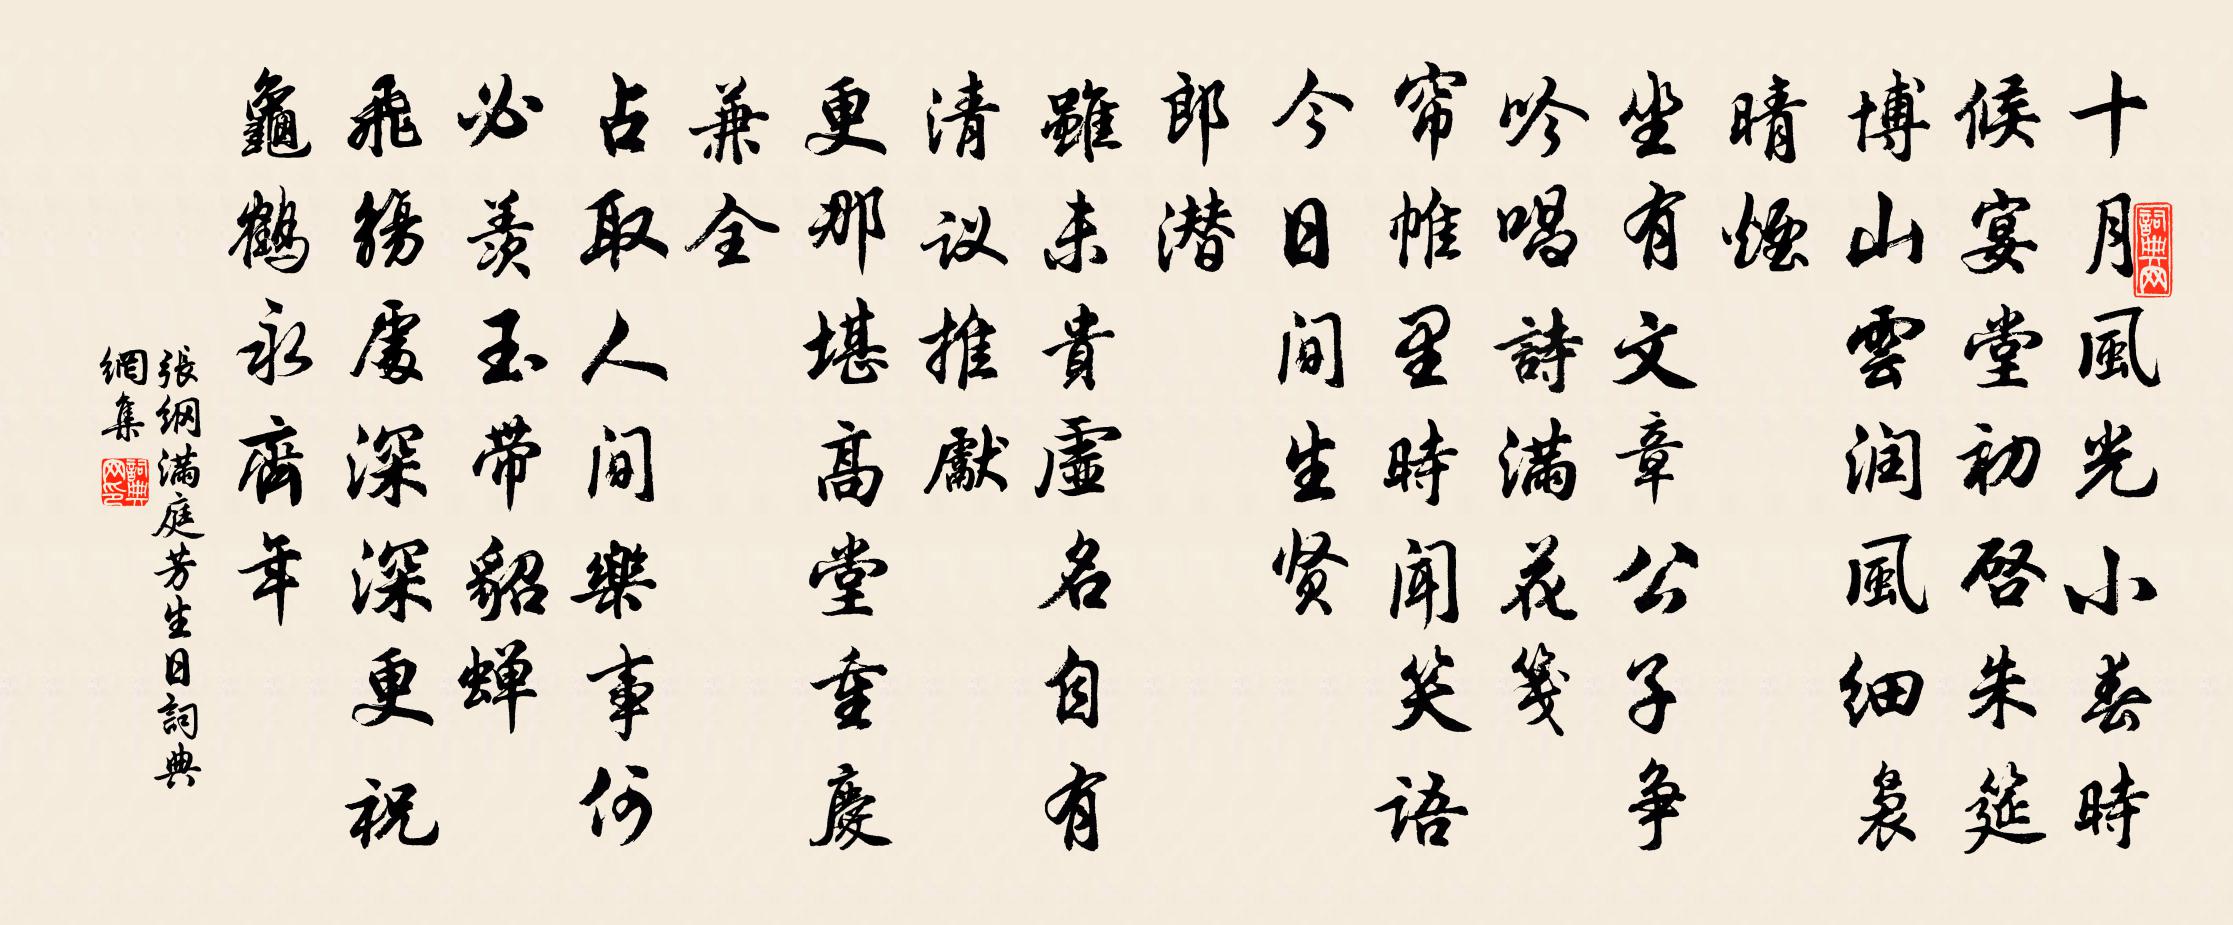 十月風光小春時
候宴堂初啓朱筵
博山雲润風细裊
晴煙
坐有文章公子争
吟唱詩满花箋
帘帷里時聞笑语
今日间生贤
郎潜
雖未貴虛名自有
清议推獻
更那堪高堂重慶
兼全
占取人间樂事何
必羡玉带貂蝉
飛觴處深深更祝
龜鶴永齊年
張纲满庭芳生日詞典
網集
詞典网
詞典网印